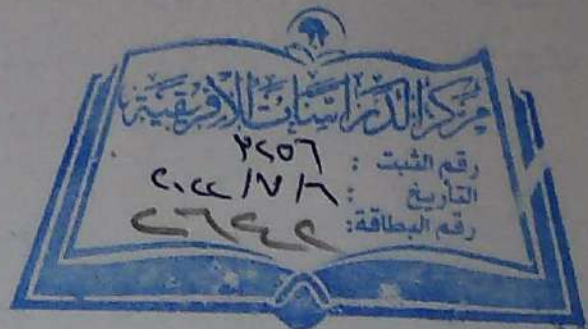 مركز الدراسات الأفريقية
رقم الثبت : ٣٢٥٦
التأريخ : ٢٠٢٢/٧/٦
رقم البطاقة: ٢٦٤٢